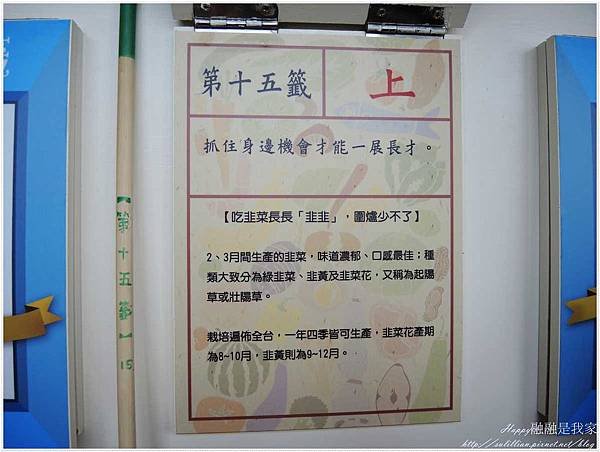 第十五籤
上
抓住身邊機會才能一展長才。
【吃韭菜長長「韭韭」，圍爐少不了】
2、3月間生產的韭菜，味道濃郁、口感最佳；種
類大致分為綠韭菜、韭黃及韭菜花，又稱為起陽
草或壯陽草。
栽培遍佈全台，一年四季皆可生產，韭菜花產期
為8~10月，韭黃則為9~12月。
【第十五籤】
15
Happy融融是我家
http://sulillian.pixnet.net/blog